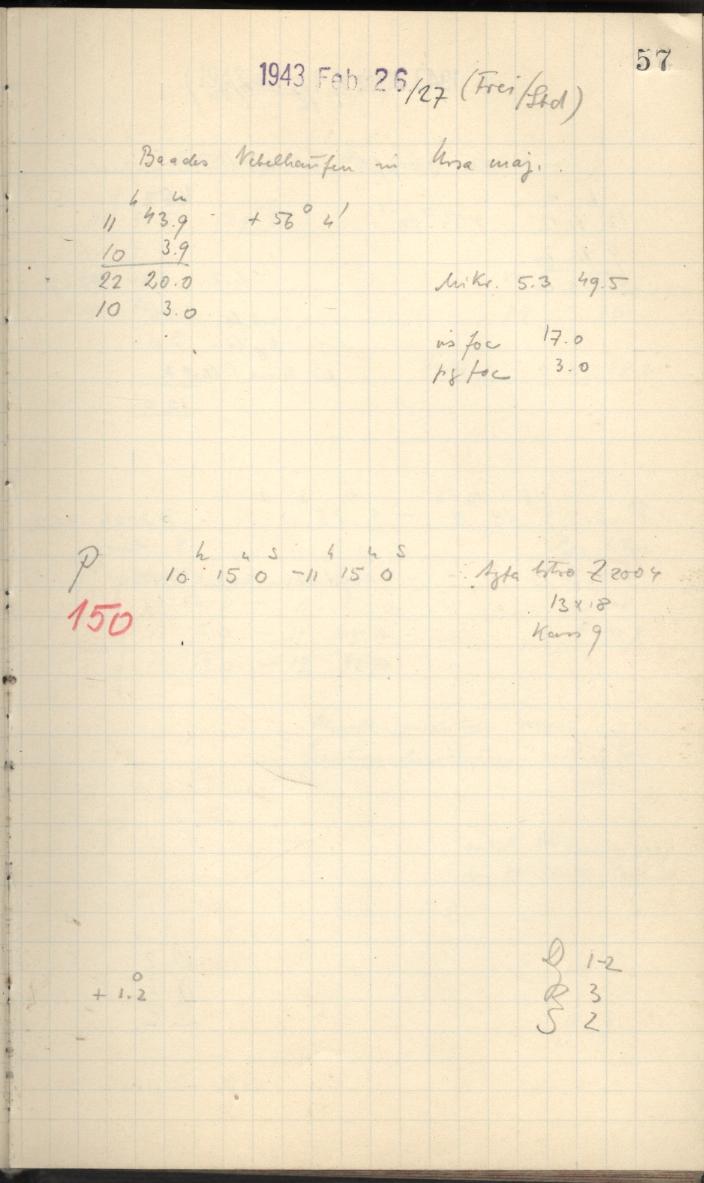 57
1943 Feb. 26/27 (Frei/Sbd)
Baades Nebelhaufen in Ursa maj.
11h 43.9m + 56° 4'
10 3.9
22 20.0 Mikr. 5.3 49.5
10 3.0
vis foc 17.0
pg foc 3.0
P 10h 15m 0s - 11h 15m 0s Agfa Astro Z 2004
150 13 x 18
Kass 9
D 1-2
+ 1.2° R 3
S 2